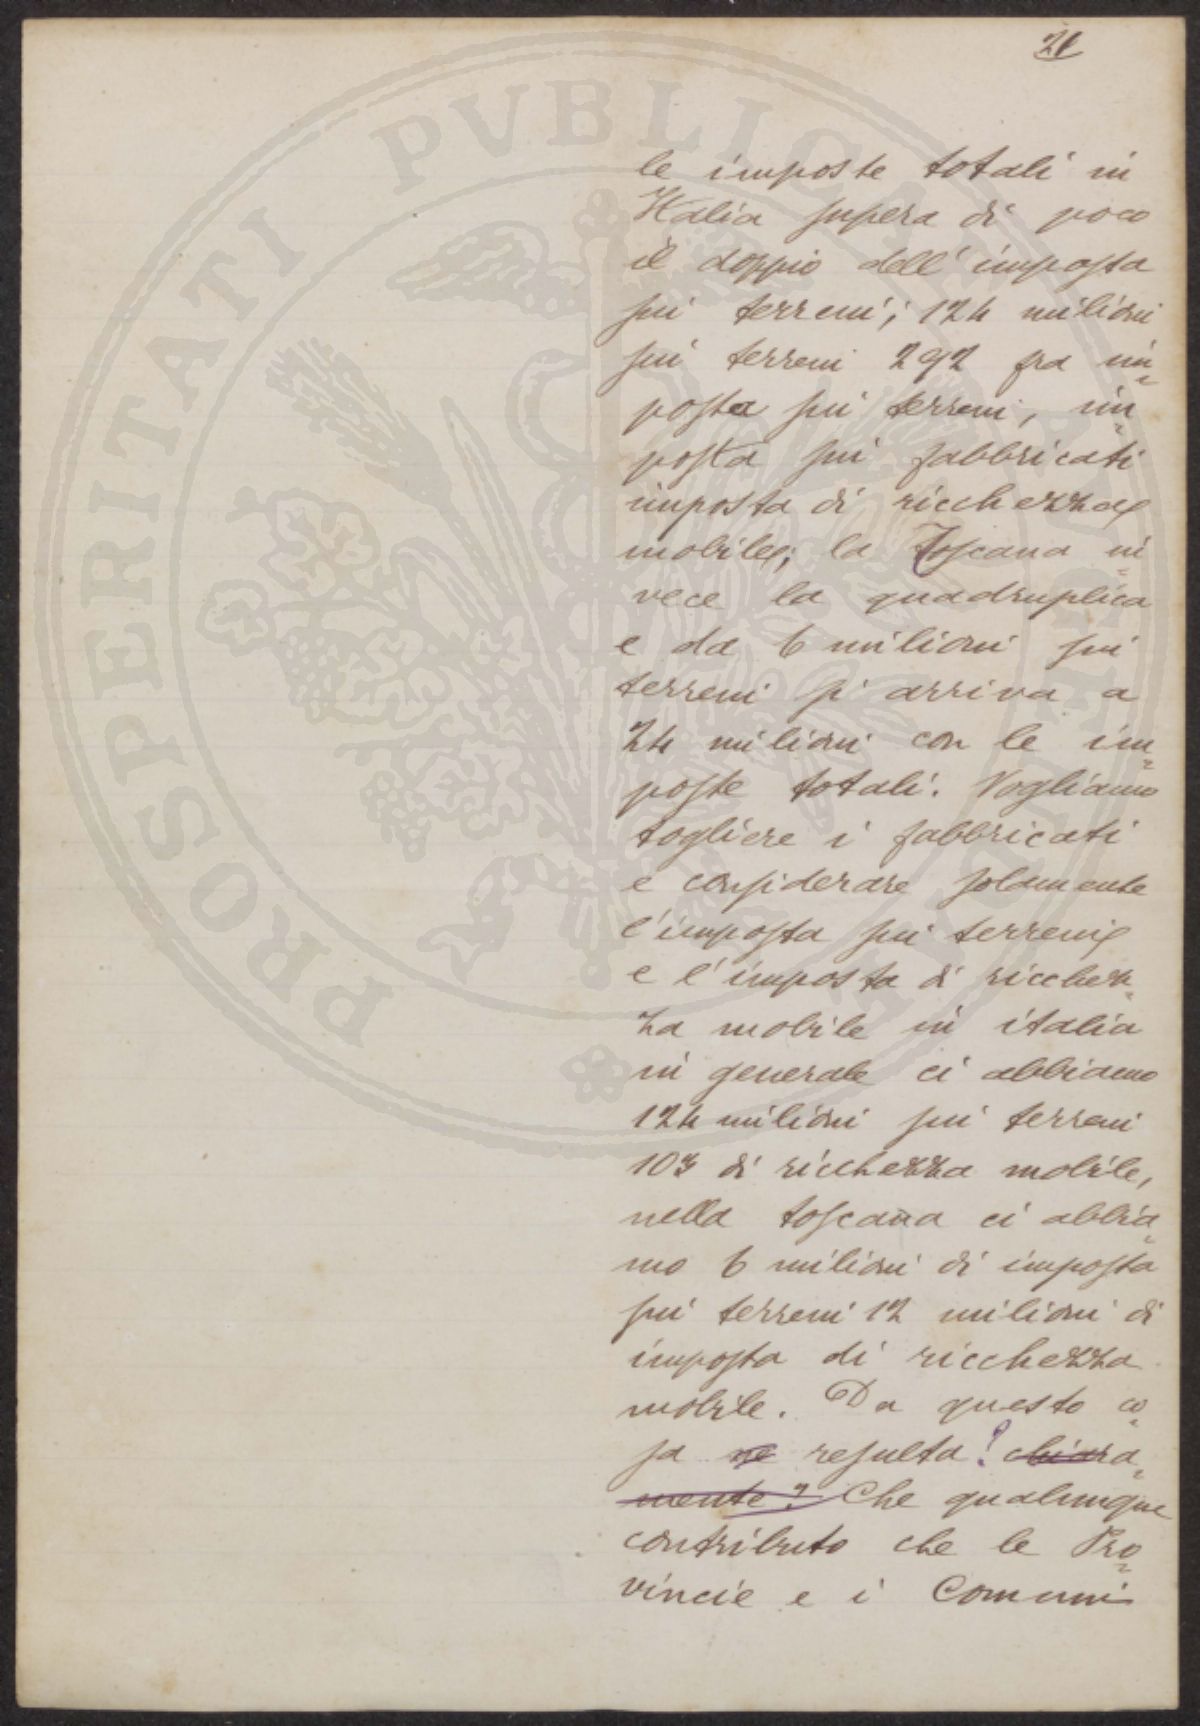 21
le imposte totali in
Italia supera di poco
il doppio dell'imposta
sui terreni; 124 milioni
sui terreni 292 fra im=
posta sui terreni, im=
posta sui fabbricati
imposta di ricchezza
mobile; la Toscana in=
vece la quadruplica
e da 6 milioni sui
terreni si arriva a
24 milioni con le im=
poste totali. Vogliamo
togliere i fabbricati
e considerare solamente
l'imposta sui terreni
e l'imposta di ricchez=
za mobile in italia
in generale ci abbiamo
124 milioni sui terreni
103 di ricchezza mobile,
nella toscana ci abbia=
mo 6 milioni di imposta
sui terreni 12 milioni di
imposta di ricchezza
mobile. Da questo co=
sa ne resulta? chiara=
mente? Che qualunque
contributo che le Pro=
vincie e i Comuni
PROSPERITATI PVBLICAE AVGENDAE